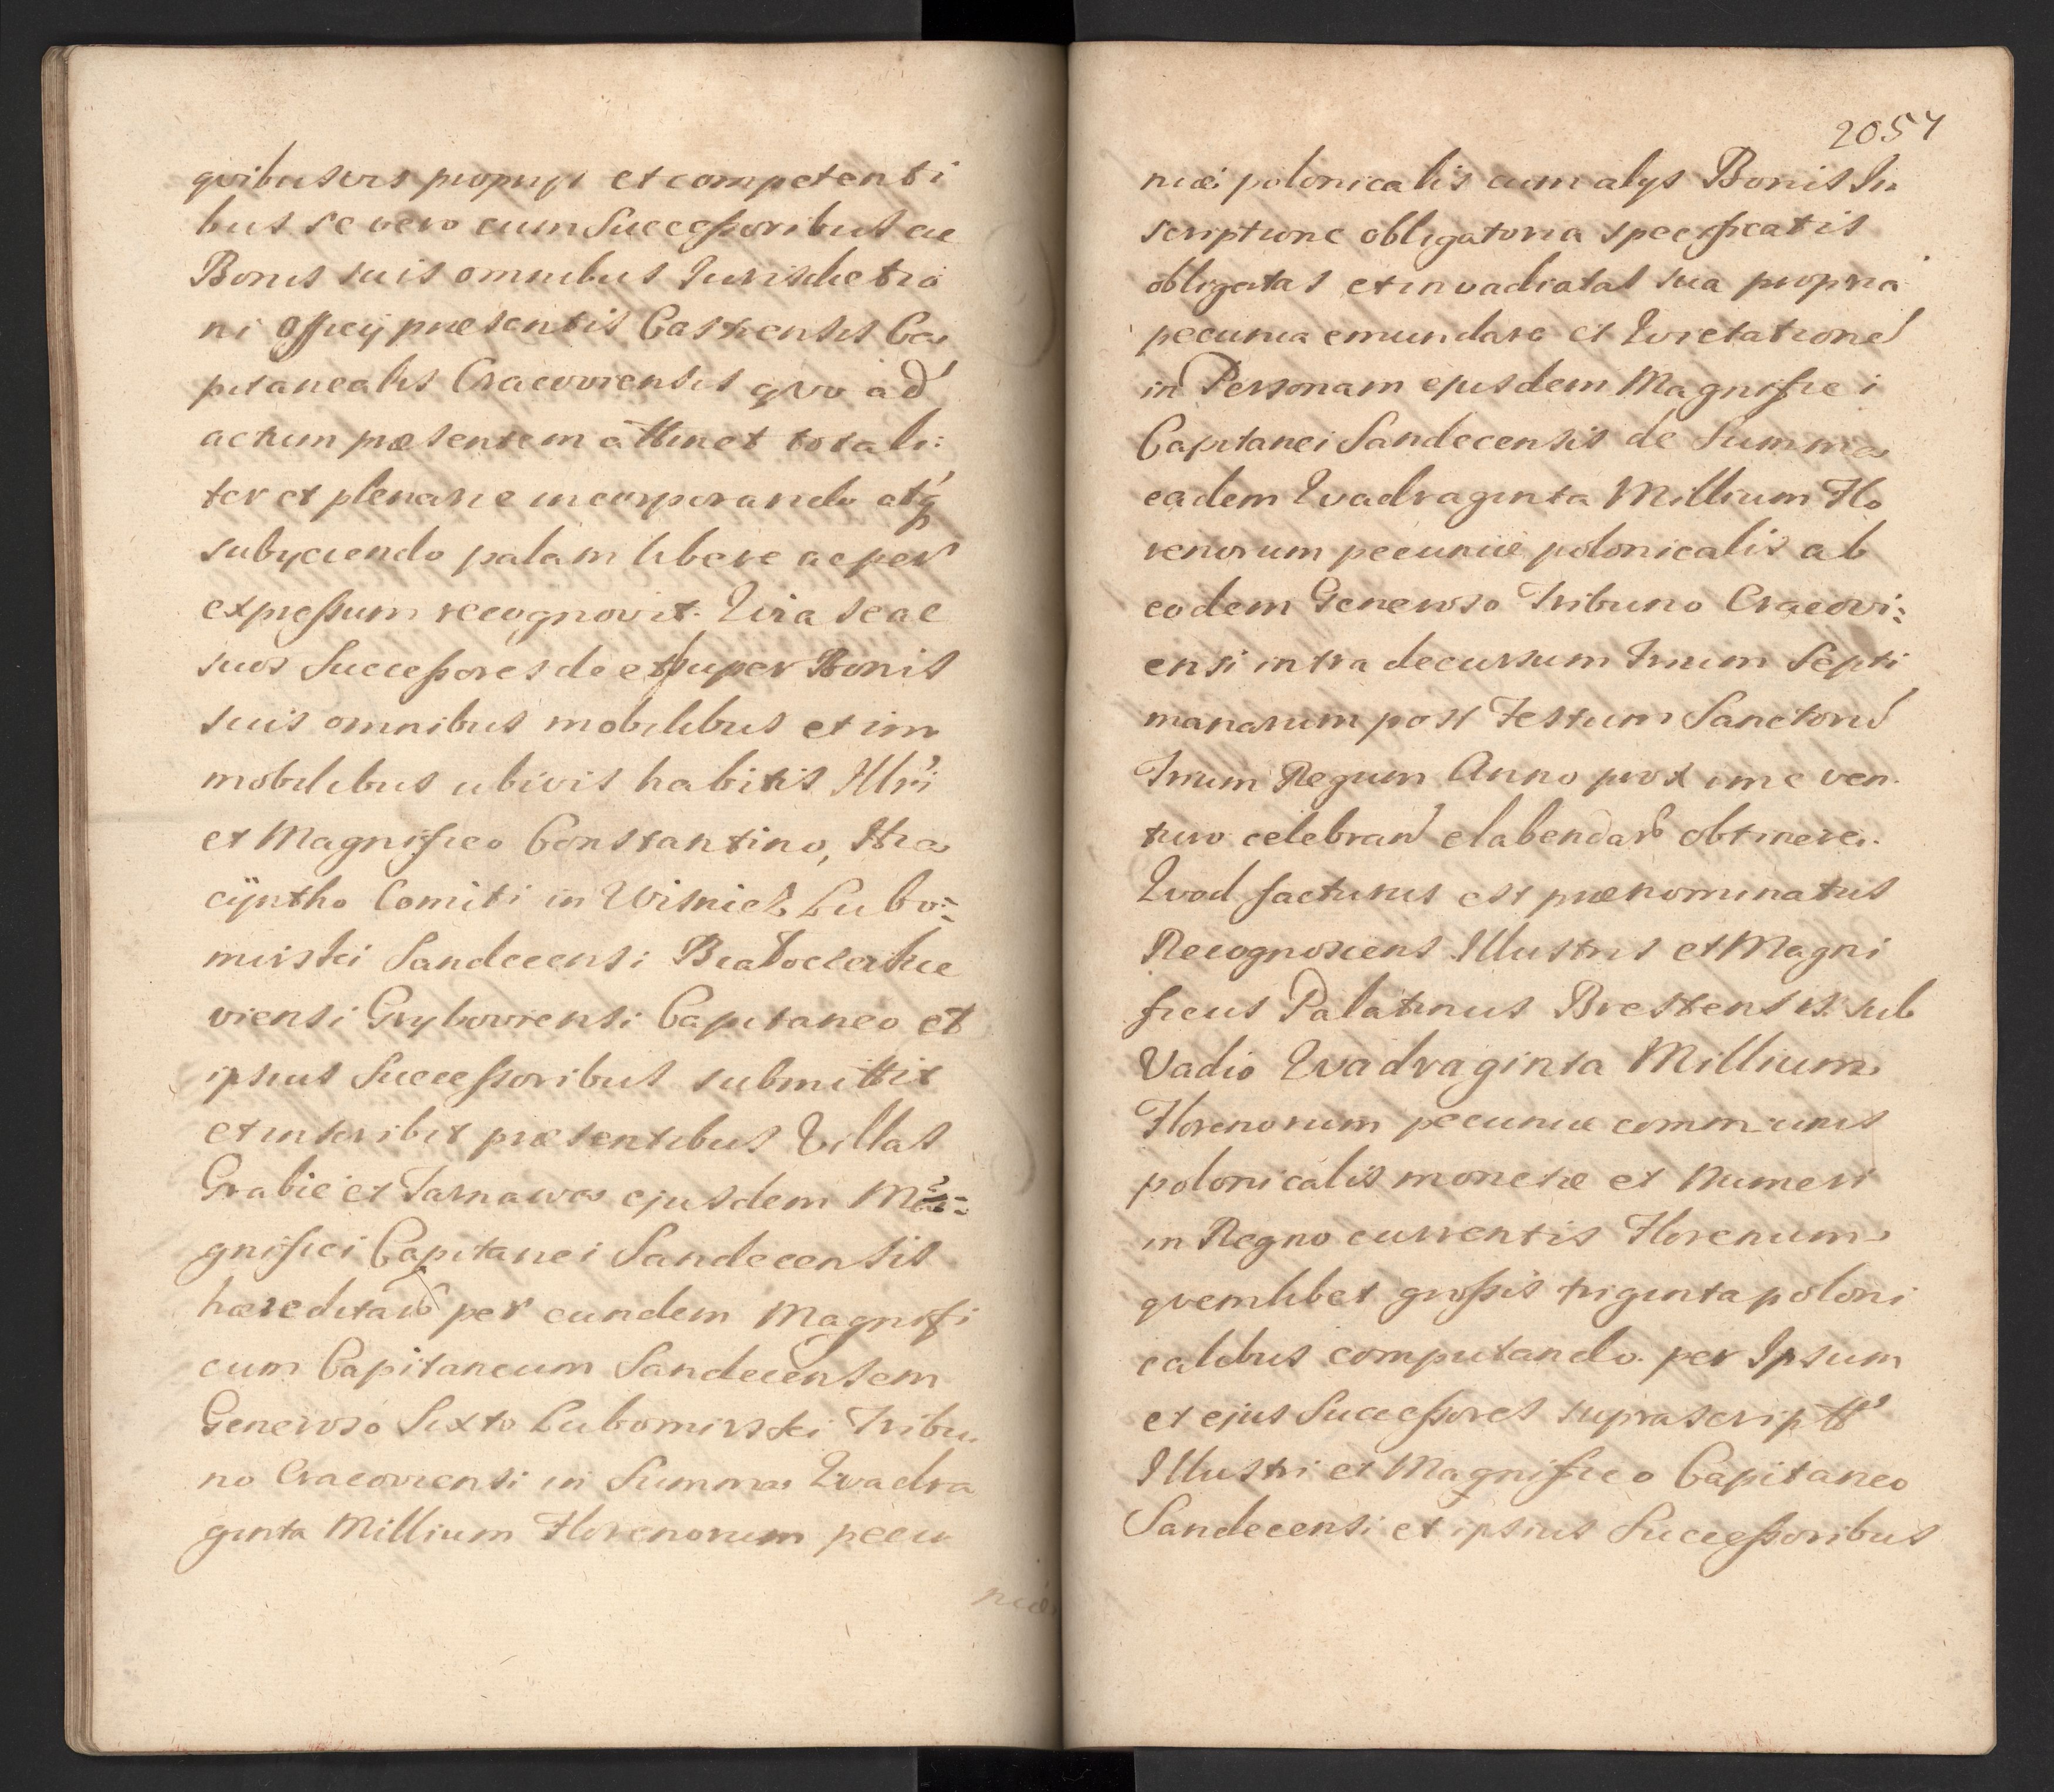 qvibusvis proprijs et competenti
bus se vero cum Successoribus ac
Bonis suis omnibus Jurisdictio
ni Officij præsentis Castrensis Ca
pitanealis Cracoviensis qvo ad
actum præsentem attinet totali:
ter et plenarie incorporando atq3
subyciendo palam libere ac per
expressum recognovit. Qvia se ac
suos Successores de et super Bonis
suis omnibus mobilibus et im
mobilibus ubivis habitis Illri
et Magnifico Constantino, Hia
cÿntho Comiti in Wisnicz Lubo=
mirski Sandecensi Białocerkie
viensi Grybowiensi Capitaneo et
ipsius Successoribus submittit
et inscribit præsentibus Villas
Grabie et Tarnawa ejusdem Ma=
gnifici Capitanei Sandecensis
hæreditar per eundem Magnifi
cum Capitaneum Sandecensem
Generoso Sixto Lubomirski Tribu
no Cracoviensi in Summa Qvadra
ginta Millium Florenorum pecu
niæ
2057
niæ polonicalis cum alys Bonis In
scriptione obligatoria specificatis
obligatas et invadiatas sua propria
pecunia emundare et Qvietatione
in Personam ejusdem Magnifici
Capitanei Sandecensis de Summa
eadem Qvadraginta Millium Flo
renorum pecuniæ polonicalis ab
eodem Generoso Tribuno Cracovi:
ensi intra decursum Trium Septi
manarum post Festum Sanctoru
Trium Regum Anno proxime ven
turo celebran elabendar obtinere.
Qvod facturus est prænominatus
Recognoscens Illustris et Magni
ficus Palatinus Brestensis sub
Vadio Qvadraginta Millium
Florenorum pecuniæ communis
polonicalis monetæ et Numeri
in Regno currentis Florenum
qvemlibet grossis triginta poloni
calibus computando. per Ipsum
et ejus Successores suprascriptt
Illustri et Magnifico Capitaneo
Sandecensi et ipsius Successoribus